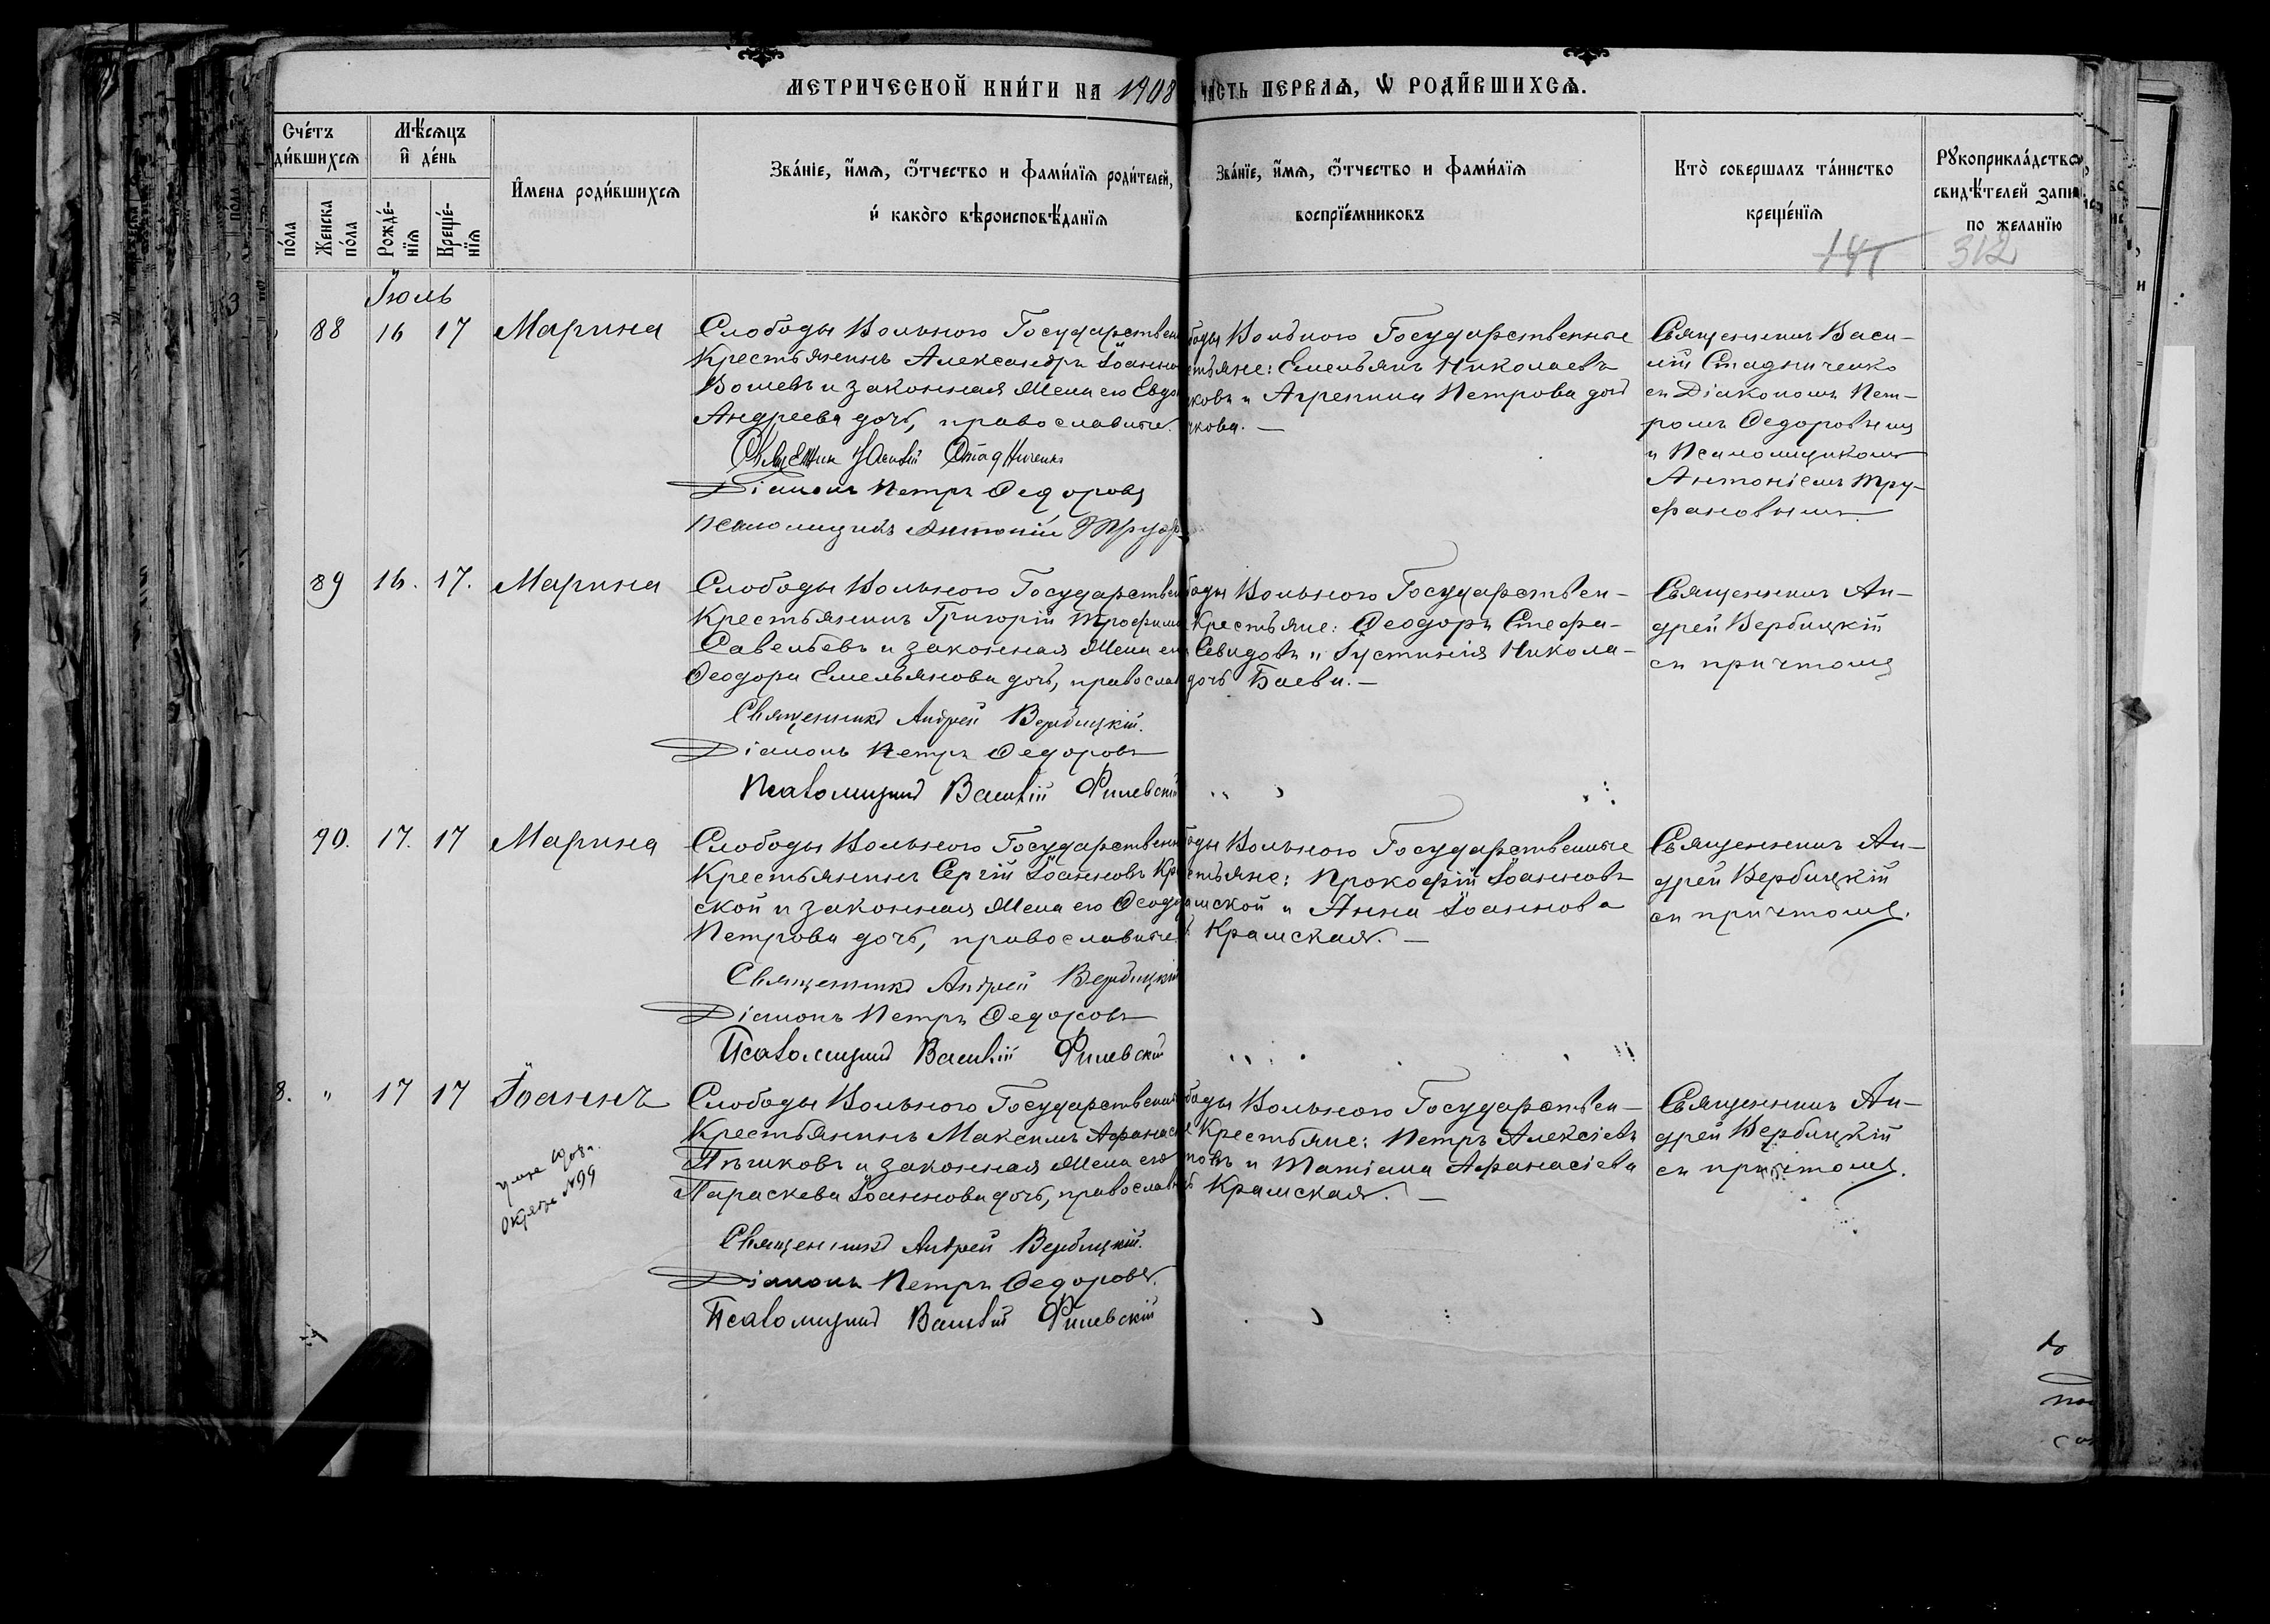 МЕТРИЧЕСКОЙ КНИ́ГИ НА 1908
ЧАСТЬ ПЕРВАѦ, Ѡ РОДИ́ВШИХСѦ.
Сче́тъ
ди́вшихсѧ
Мѣ́сѧцъ
и҆ де́нь
по́ла
Женска
по́ла
Рожде́-
нїѧ
Креще́-
нїѧ
И҆мена роди́вшихсѧ
Зва́нїе, и҆́мѧ, ѻ҆́тчество и фами́лїѧ роди́телей,
и҆ како́го вѣроисповѣ́данїѧ
Зва́нїе, и҆́мѧ, ѻ҆́тчество и фами́лїѧ
воспрїе́мниковъ
Кто̀ совершалъ та́инство
креще́нїѧ
Рꙋкоприкла́дство
свидѣ́телей запи
по желанїю
312
Іюль
88 16 17 Марина
Слободы Вольного Государствен
Крестьянинъ Александръ Іоанно
и законная жена его Евдо
Андреева дочь, православные.
Священник Василій Стадниченко
Діаконъ Петръ Федоровъ
Псаломщикъ Антоній Труф
боды Вольного Государственные
стьяне: Емельянъ Николаевъ
ковъ и Агрепина Петрова дочь
чкова. —
Священникъ Васи-
лій Стадниченко
съ Діакономъ Пет-
ромъ Федоровымъ
и Псаломщикомъ
Антоніемъ Тру-
фановымъ.
89 16. 17. Марина
Слободы Вольного Государствен
Крестьянинъ Григорій Трофимо
Савельевъ и законная жена его
Феодора Емельянова дочь, православ
Священникъ Андрей Вербицкій.
Діаконъ Петръ Федоровъ
Псаломщикъ Василій Филевскій
боды Вольного Государствен-
Крестьяне: Феодоръ Стефа-
Севидовъ и Іустинія Никола-
дочь Баева. —
Священникъ Ан-
дрей Вербицкій
съ причтомъ
90. 17. 17 Марина
Слободы Вольного Государственн
Крестьянинъ Сергій Іоанновъ Кра
ской и законная жена его Феодо
Петрова дочь, православные.
Священникъ Андрей Вербицкій
Діаконъ Петръ Федоровъ
Псаломщикъ Василій Филевскій
боды Вольного Государственные
стьяне: Прокофій Іоанновъ
амской и Анна Іоаннова
Крамская. —
Священникъ Ан-
дрей Вербицкій
съ причтомъ.
8. " 17 17 Іоаннъ
умре 1908 г.
Октября №99
Слободы Вольного Государственн
Крестьянинъ Максимъ Афанасіе
Пѣчиковъ и законная жена его
Параскева Іоаннова дочь, православ
Священникъ Андрей Вербицкій.
Діаконъ Петръ Федоровъ.
Псаломщикъ Василій Филевскій
боды Вольного Государствен-
Крестьяне: Петръ Алексіевъ
и Татіана Афанасіева
Крамская. —
Священникъ Ан-
дрей Вербицкій
съ причтомъ.